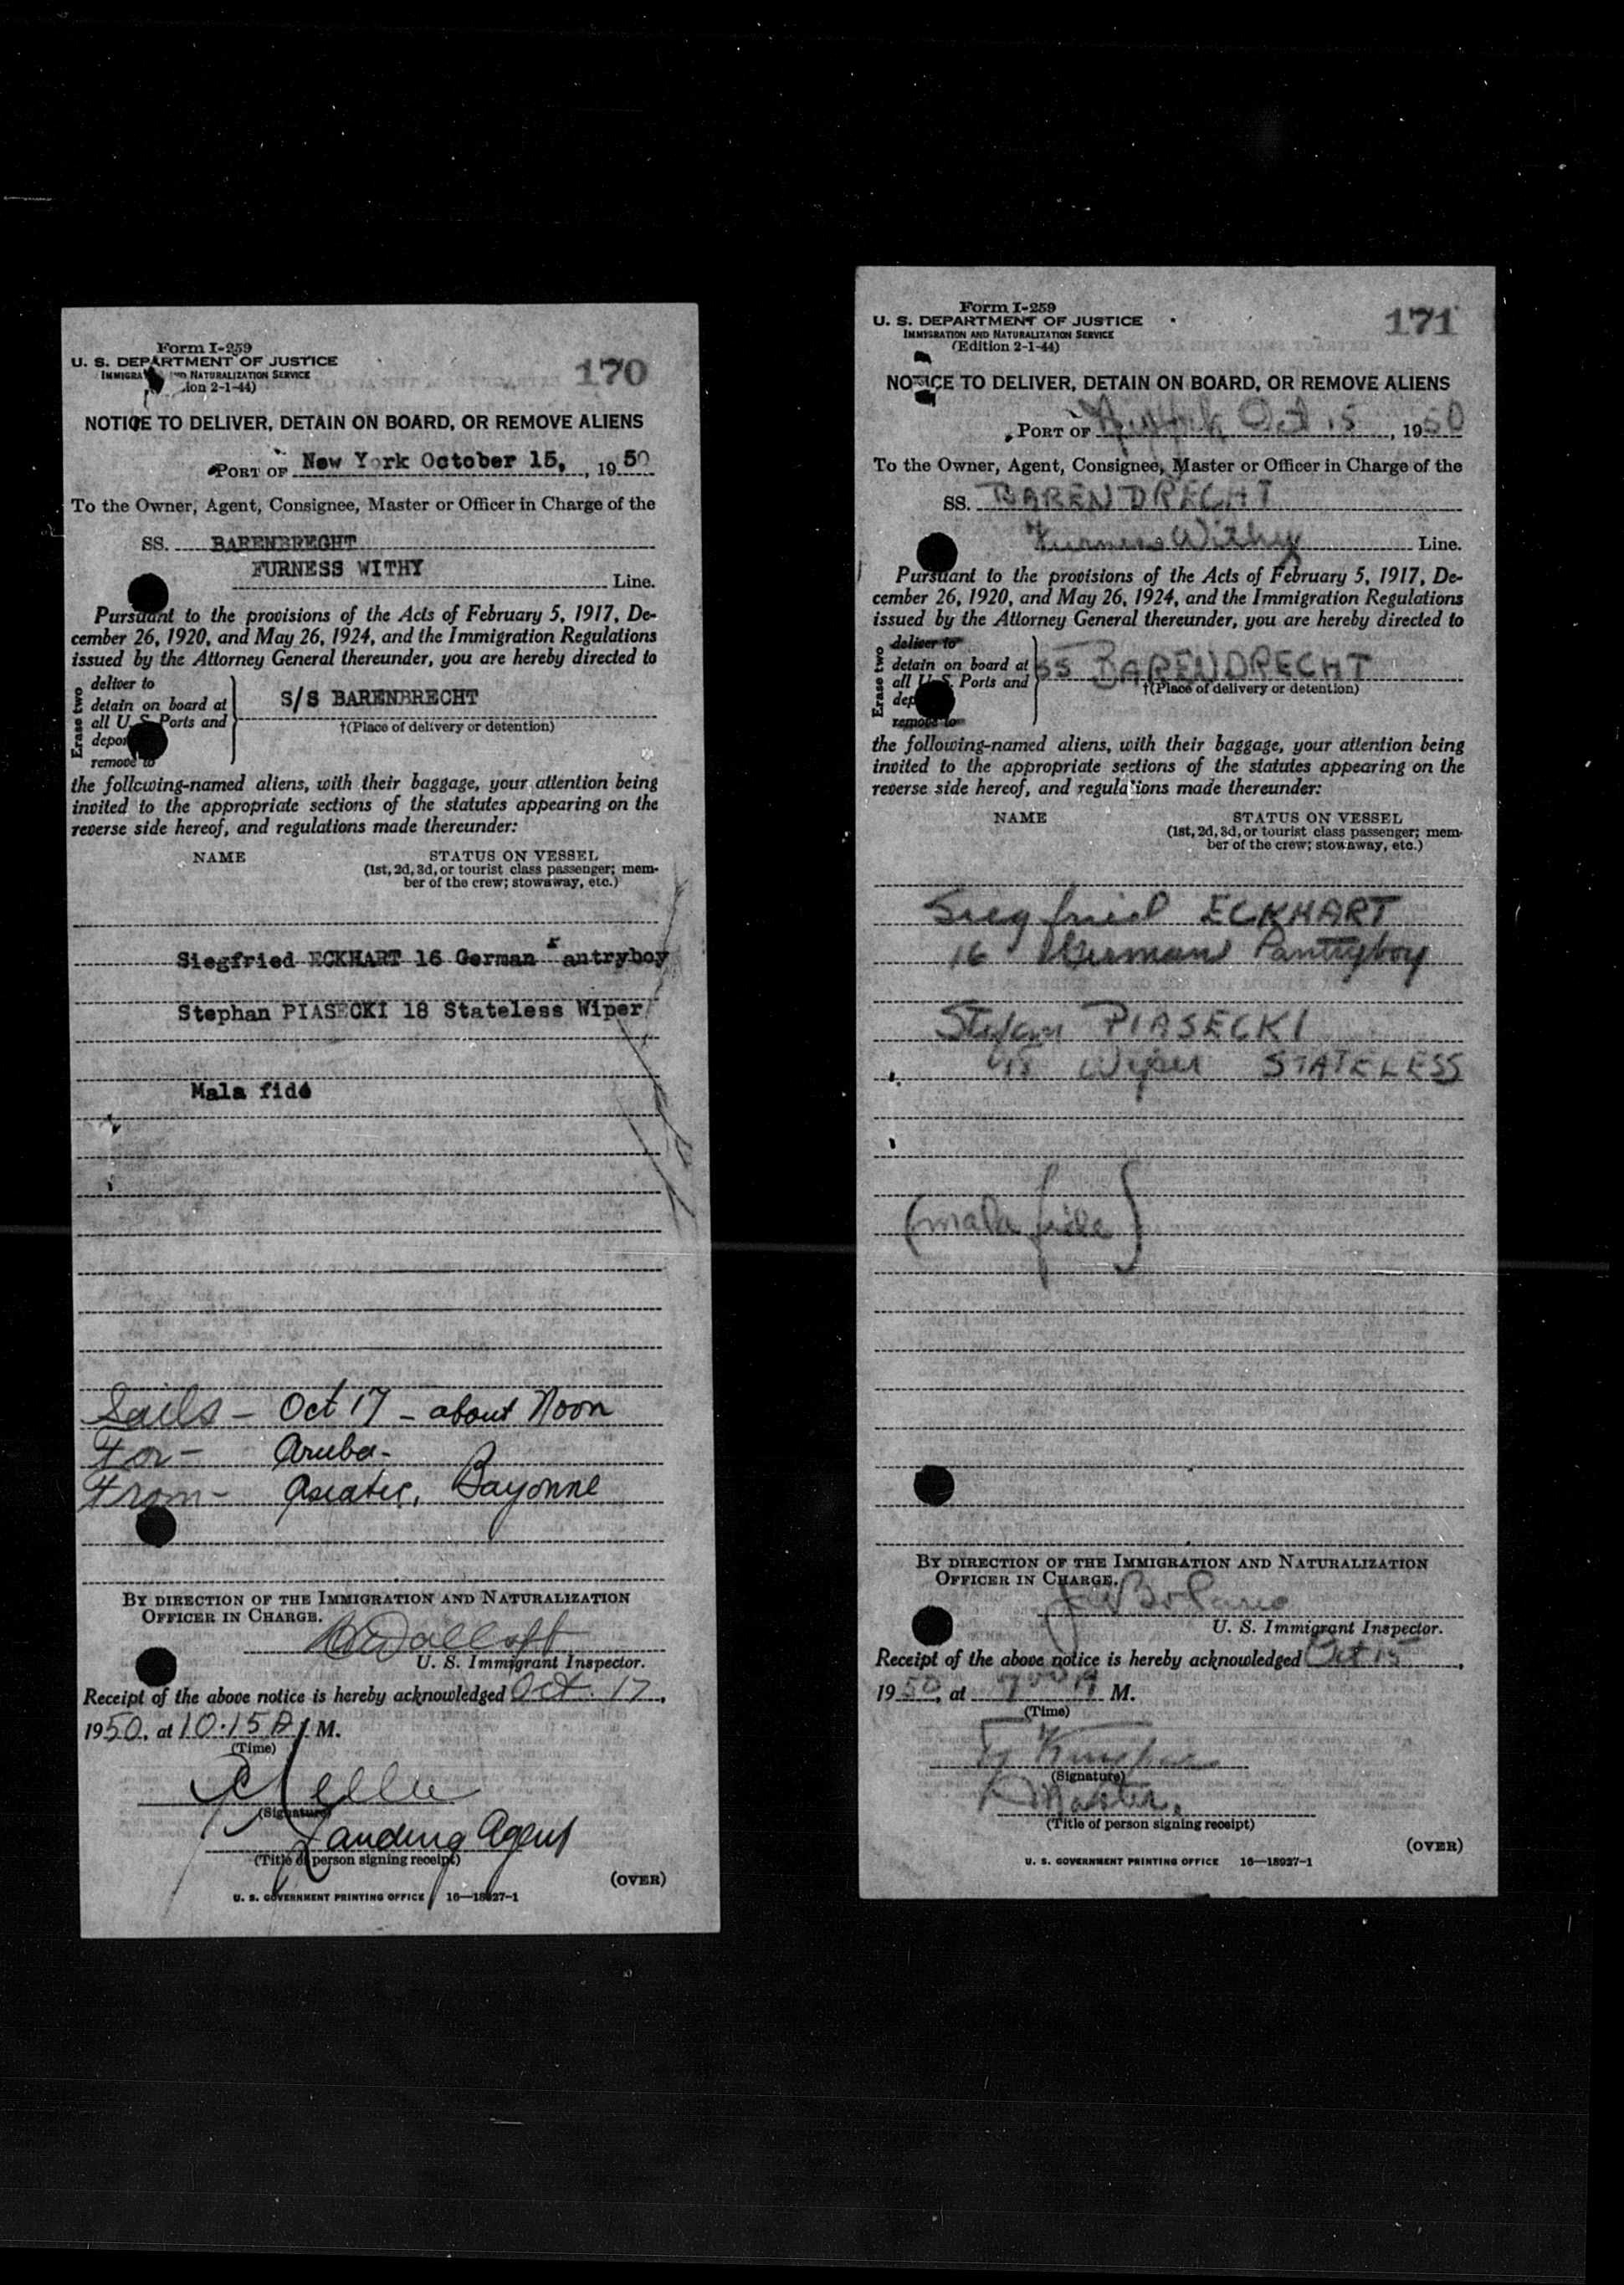 Form I-259
U. S. DEPARTMENT OF JUSTICE
IMMIGRA ND NATURALIZATION SERVICE
ion 2-1-44)
170
NOTICE TO DELIVER, DETAIN ON BOARD, OR REMOVE ALIENS
PORT OF New York October 15, , 1950
To the Owner, Agent, Consignee, Master or Officer in Charge of the
SS. BARENBREGHT
FURNESS WITHY Line.
Pursuant to the provisions of the Acts of February 5, 1917, De-
cember 26, 1920, and May 26, 1924, and the Immigration Regulations
issued by the Attorney General thereunder, you are hereby directed to
Erase two
deliver to
detain on board at
all U. S. Ports and
depor
remove to
S/S BARENBRECHT
†(Place of delivery or detention)
the following-named aliens, with their baggage, your attention being
invited to the appropriate sections of the statutes appearing on the
reverse side hereof, and regulations made thereunder:
NAME STATUS ON VESSEL
(1st, 2d, 3d, or tourist class passenger; mem-
ber of the crew; stowaway, etc.)
Siegfried ECKHART 16 German antryboy
Stephan PIASECKI 18 Stateless Wiper
Mala fide
Sails - Oct 17 - about Noon
For - Aruba -
From - Asiatic, Bayonne
BY DIRECTION OF THE IMMIGRATION AND NATURALIZATION
OFFICER IN CHARGE.
U. S. Immigrant Inspector.
Receipt of the above notice is hereby acknowledged Oct. 17,
1950, at 10:15 A M.
(Time)
(Signature)
Landing Agent
(Title of person signing receipt)
(OVER)
U. S. GOVERNMENT PRINTING OFFICE 16—18927-1
Form I-259
U. S. DEPARTMENT OF JUSTICE
IMMIGRATION AND NATURALIZATION SERVICE
(Edition 2-1-44)
171
NOTICE TO DELIVER, DETAIN ON BOARD, OR REMOVE ALIENS
PORT OF Oct 15, 1950
To the Owner, Agent, Consignee, Master or Officer in Charge of the
SS. BARENDRECHT
Furness Withy Line.
Pursuant to the provisions of the Acts of February 5, 1917, De-
cember 26, 1920, and May 26, 1924, and the Immigration Regulations
issued by the Attorney General thereunder, you are hereby directed to
Erase two
deliver to
detain on board at
all U. S. Ports and
dep
remove to
SS BARENDRECHT
†(Place of delivery or detention)
the following-named aliens, with their baggage, your attention being
invited to the appropriate sections of the statutes appearing on the
reverse side hereof, and regulations made thereunder:
NAME STATUS ON VESSEL
(1st, 2d, 3d, or tourist class passenger; mem-
ber of the crew; stowaway, etc.)
Siegfried ECKHART
16 German Pantryboy
Stefan PIASECKI
18 Wiper STATELESS
(mala fide)
BY DIRECTION OF THE IMMIGRATION AND NATURALIZATION
OFFICER IN CHARGE.
U. S. Immigrant Inspector.
Receipt of the above notice is hereby acknowledged Oct 15,
1950, at M.
(Time)
(Signature)
Master.
(Title of person signing receipt)
(OVER)
U. S. GOVERNMENT PRINTING OFFICE 16—18927-1